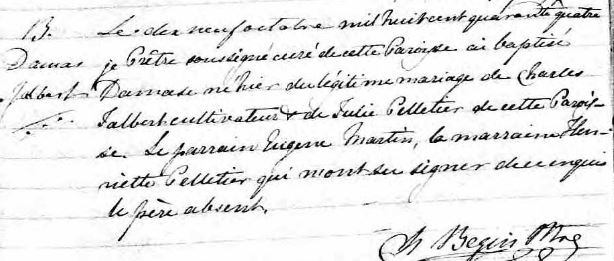 B.
Damas
Jalbert
Le dix neuf octobre mil huit cent quarante quatre
je Prêtre soussigné curé de cette Paroisse ai baptisé
Damase né hier du légitime mariage de Charles
Jalbert cultivateur & de Julie Pelletier de cette Parois-
se. Le parrain Eugene Martin, la marraine Hen-
riette Pelletier qui n'ont su signer de ce enquis
le père absent.
Begin Ptre